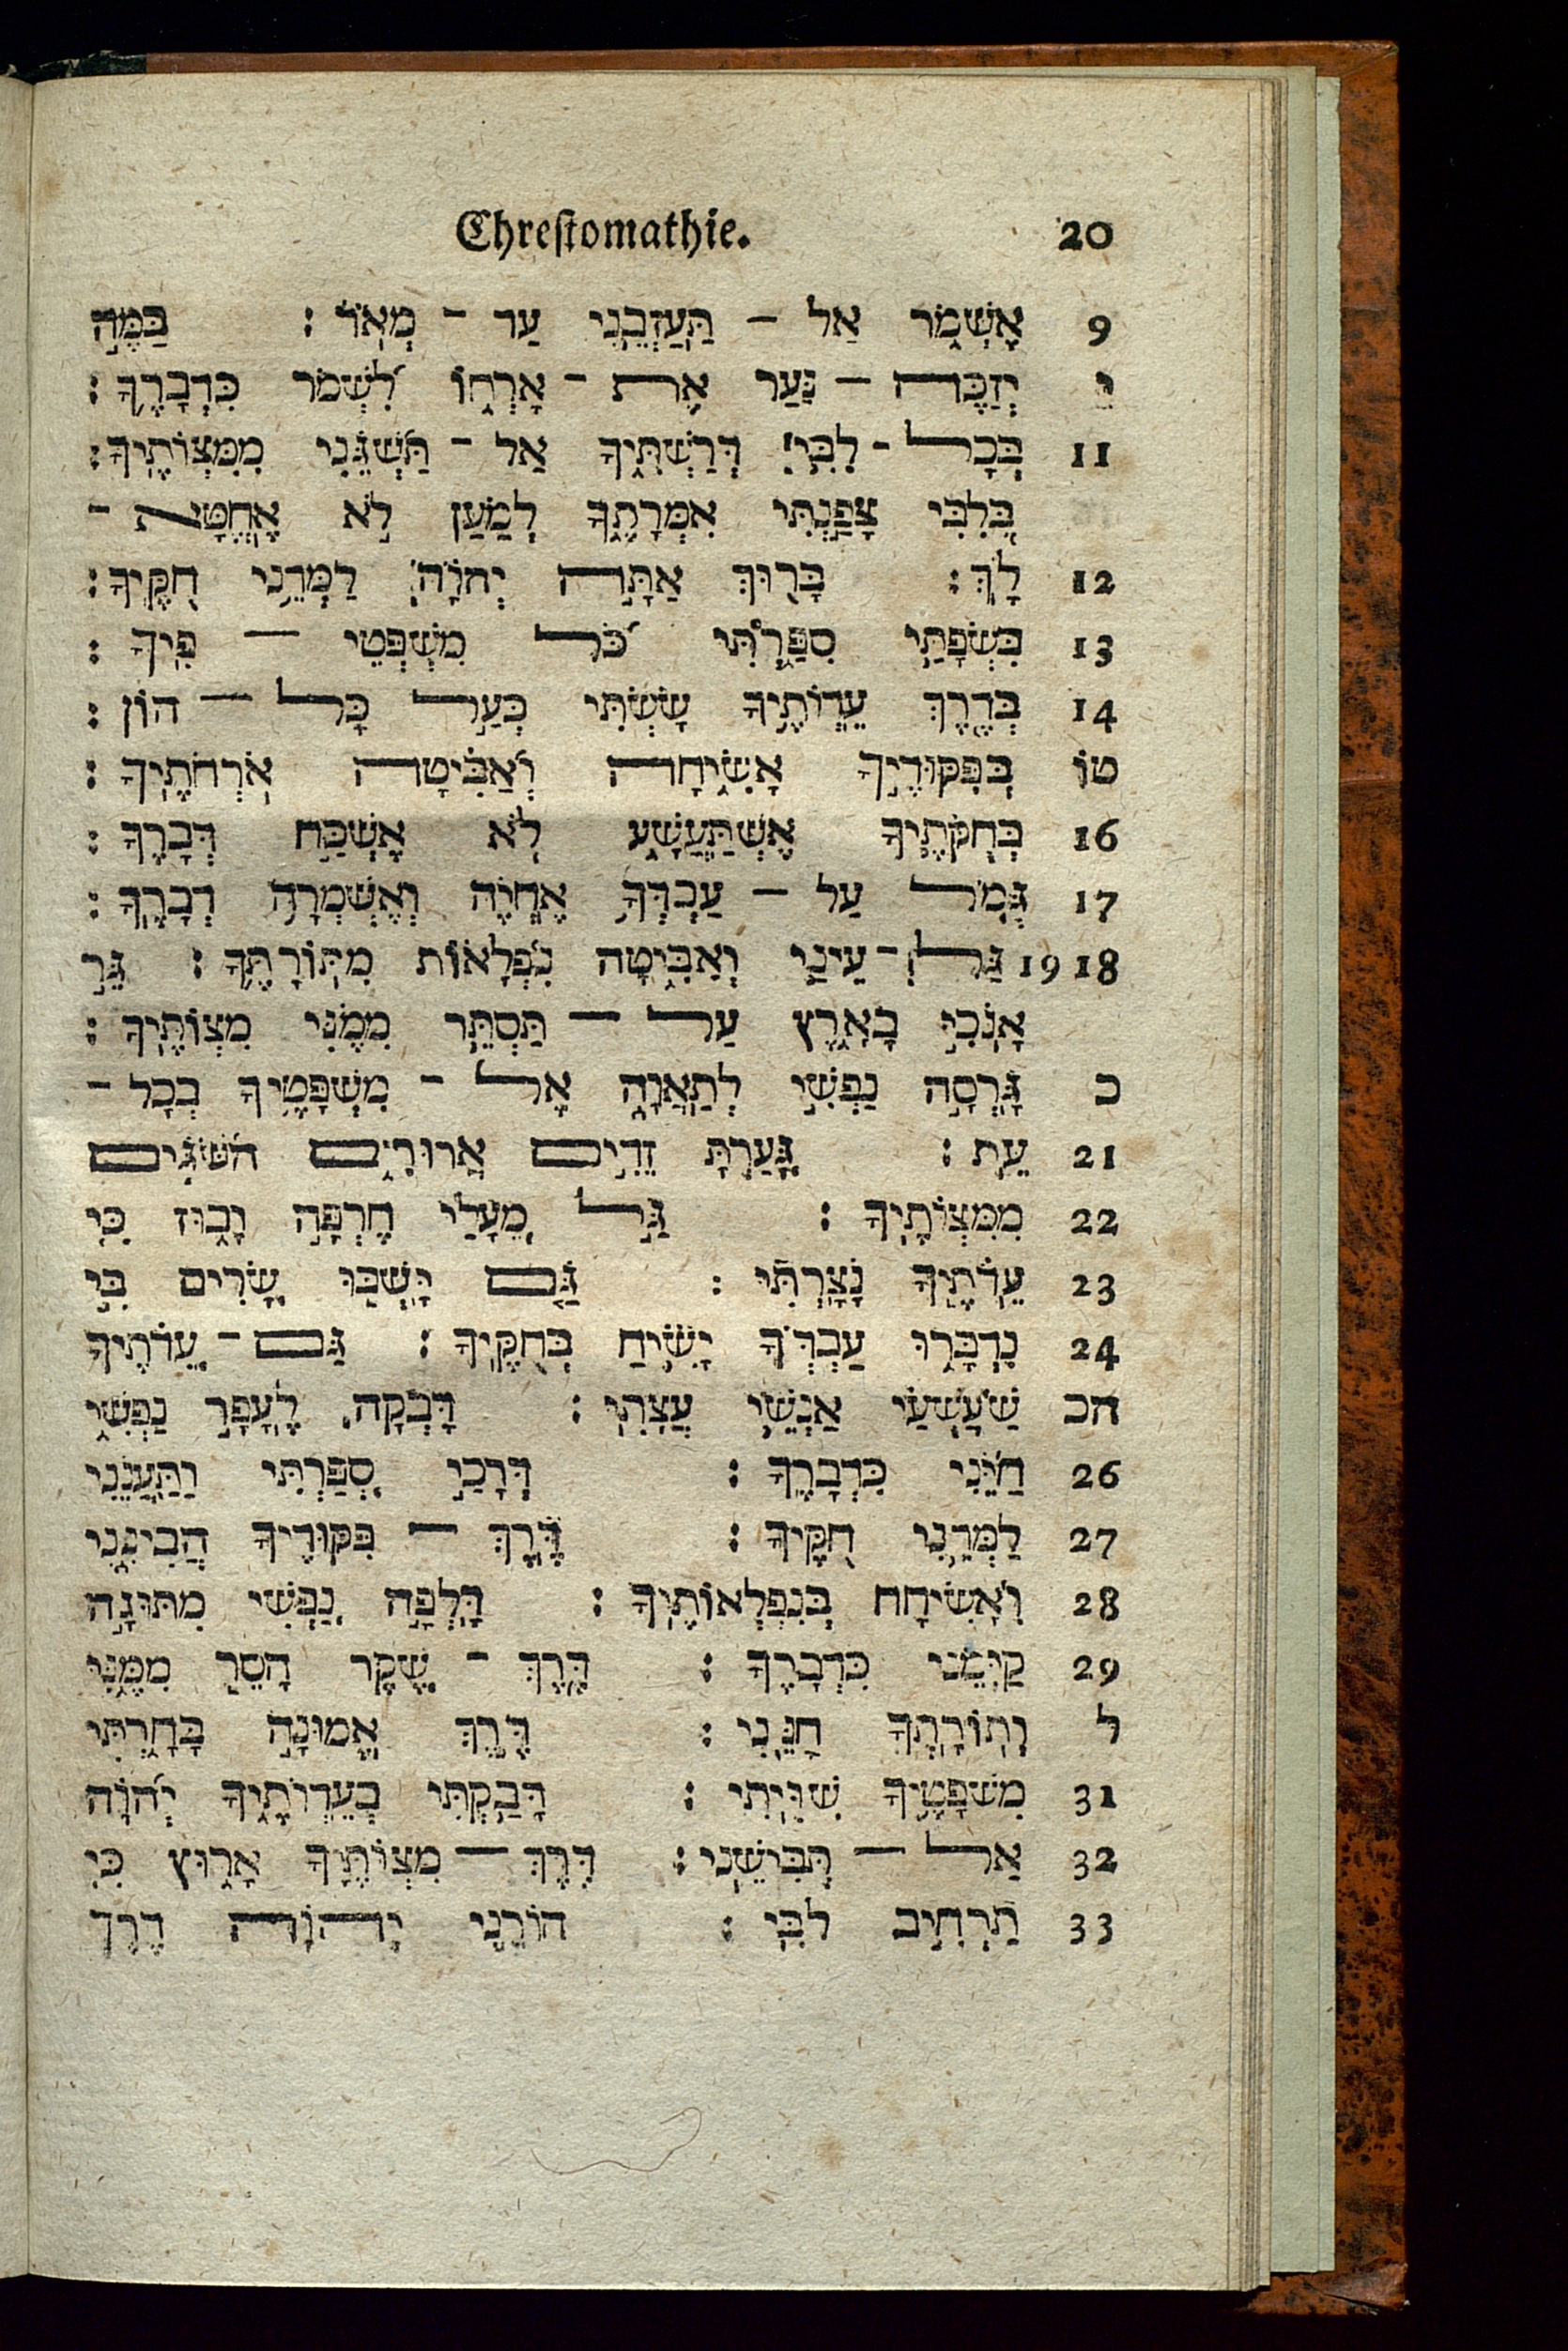 Chrestomathie. 20
9 אֶשְׁמֹר אַל - תַּעַזְבֵנִי עַר - מְאֹד : בַּמֶּה
י יְזַכֶּה - נַּעַר אֶת - אָרְחוֹ לִשְׁמֹר כִּדְבָרֶךָ :
11 בְּכָל - לִבִּי דְרַשְׁתִּיךָ אַל - תַּשְׁגֵּנִי מִמִּצְוֹתֶיךָ :
בְּלִבִּי צָפַנְתִּי אִמְרָתֶךָ לְמַעַן לֹא אֶחֱטָא -
12 לָךְ : בָּרוּךְ אַתָּה יְהוָה לַמְּדֵנִי חֻקֶּיךָ :
13 בִּשְׂפָתַי סִפַּרְתִּי כֹּל מִשְׁפְּטֵי - פִיךָ :
14 בְּדֶרֶךְ עֵדְוֹתֶיךָ שַׂשְׂתִּי כְּעַל כָּל - הוֹן :
טו בְּפִקּוּדֶיךָ אָשִׂיחָה וְאַבִּיטָה אֹרְחֹתֶיךָ :
16 בְּחֻקֹּתֶיךָ אֶשְׁתַּעֲשָׁע לֹא אֶשְׁכַּח דְּבָרֶךָ :
17 גְּמֹל עַל - עַבְדְּךָ אֶחְיֶה וְאֶשְׁמְרָה דְבָרֶךָ :
18 19 גַּל - עֵינַי וְאַבִּיטָה נִפְלָאוֹת מִתּוֹרָתֶךָ : גֵּר
אָנֹכִי בָאָרֶץ עַל - תַּסְתֵּר מִמֶּנִּי מִצְוֹתֶיךָ :
כ גָּרְסָה נַפְשִׁי לְתַאֲבָה אֶל - מִשְׁפָּטֶיךָ בְכָל -
21 עֵת : גָּעַרְתָּ זֵדִים אֲרוּרִים הַשֹּׁגִים
22 מִמִּצְוֹתֶיךָ : גַּל מֵעָלַי חֶרְפָּה וָבוּז כִּי
23 עֵדֹתֶיךָ נָצָרְתִּי : גַּם יָשְׁבוּ שָׂרִים בִּי
24 נִדְבָּרוּ עַבְדְּךָ יָשִׂיחַ בְּחֻקֶּיךָ : גַּם - עֵדֹתֶיךָ
הכ שַׁעֲשֻׁעָי אַנְשֵׁי עֲצָתִי : דָּבְקָה לֶעָפָר נַפְשִׁי
26 חַיֵּנִי כִּדְבָרֶךָ : דְּרָכַי סִפַּרְתִּי וַתַּעֲנֵנִי
27 לַמְּדֵנִי חֻקֶּיךָ : דֶּרֶךְ - פִּקּוּדֶיךָ הֲבִינֵנִי
28 וְאָשִׂיחָה בְּנִפְלְאוֹתֶיךָ : דָּלְפָה נַפְשִׁי מִתּוּגָה
29 קַיְּמֵנִי כִּדְבָרֶךָ : דֶּרֶךְ - שֶׁקֶר הָסֵר מִמֶּנִּי
ל וְתוֹרָתְךָ חָנֵּנִי : דֶּרֶךְ אֱמוּנָה בָחָרְתִּי
31 מִשְׁפָּטֶיךָ שִׁוִּיתִי : דָּבַקְתִּי בְעֵדְוֹתֶיךָ יְהוָה
32 אַל - תְּבִישֵׁנִי : דֶּרֶךְ - מִצְוֹתֶיךָ אָרוּץ כִּי
33 תַרְחִיב לִבִּי : הוֹרֵנִי יְהוָה דֶּרֶךְ